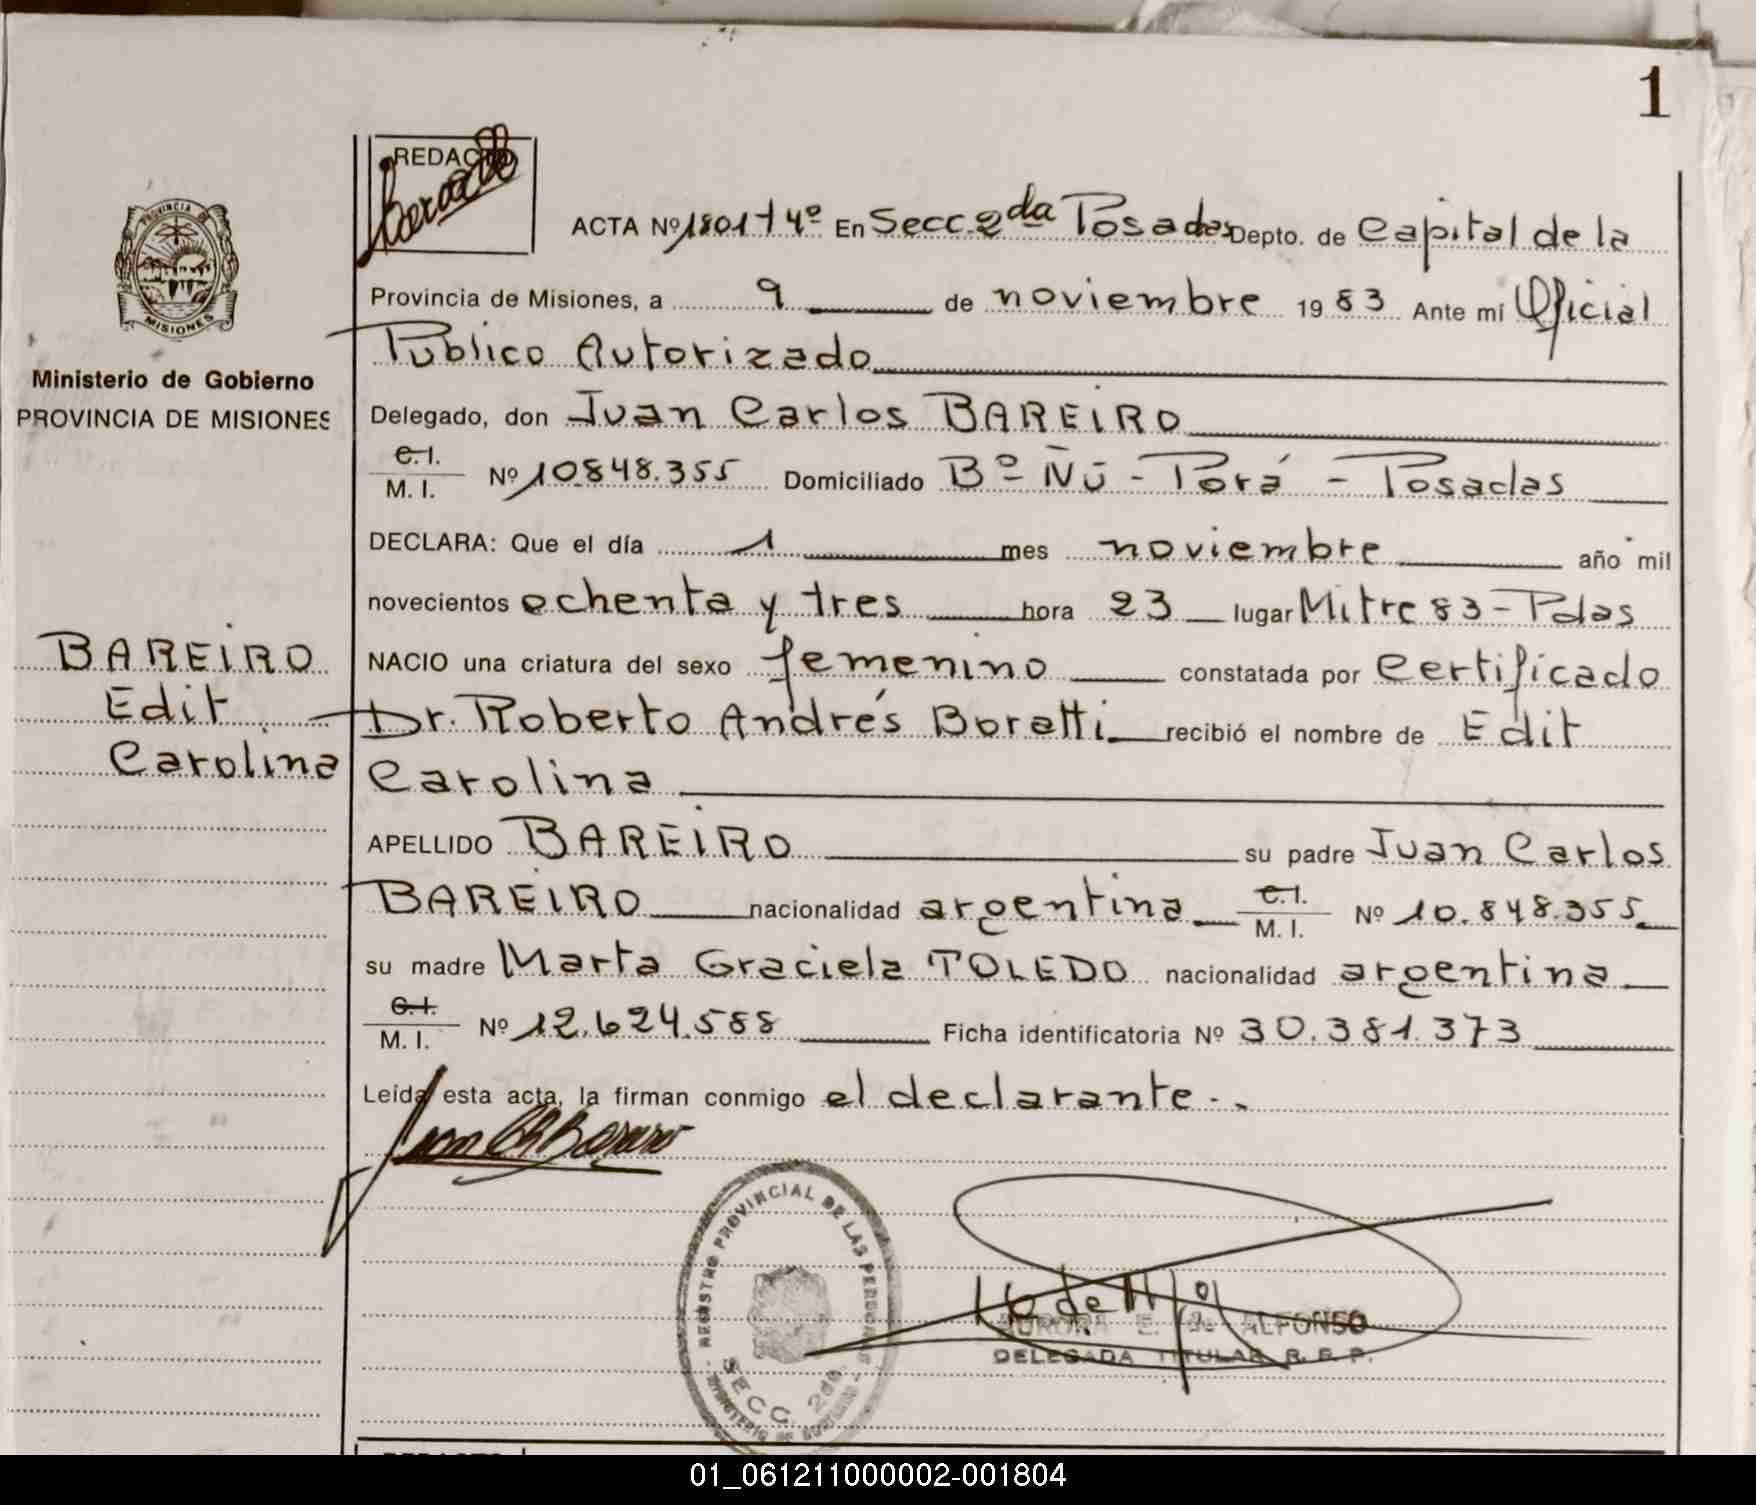 1
REDACTO
ACTA Nº 1801 t 4º En Secc. 2da Posadas Depto. de Capital de la
PROVINCIA DE
MISIONES
Provincia de Misiones, a 9 de noviembre 1983 Ante mí Oficial
Público Autorizado
Ministerio de Gobierno
PROVINCIA DE MISIONES
Delegado, don Juan Carlos BAREIRO
C. I.
M. I. Nº 10.848.355 Domiciliado Bº Ñú - Porá - Posadas
DECLARA: Que el día 1 mes noviembre año mil
novecientos ochenta y tres hora 23 lugar Mitre 83 - Pdas
BAREIRO
Edit
Carolina
NACIO una criatura del sexo femenino constatada por Certificado
Dr. Roberto Andrés Boratti recibió el nombre de Edit
Carolina
APELLIDO BAREIRO su padre Juan Carlos
BAREIRO nacionalidad argentina C. I.
M. I. Nº 10.848.355
su madre Marta Graciela TOLEDO nacionalidad argentina
C. I.
M. I. Nº 12.624.588 Ficha identificatoria Nº 30.381.373
Leída esta acta, la firman conmigo el declarante.
REGISTRO PROVINCIAL DE LAS PERSONAS
SECC. 2da.
AURORA E. de ALFONSO
DELEGADA TITULAR R. P. P.
01_061211000002-001804